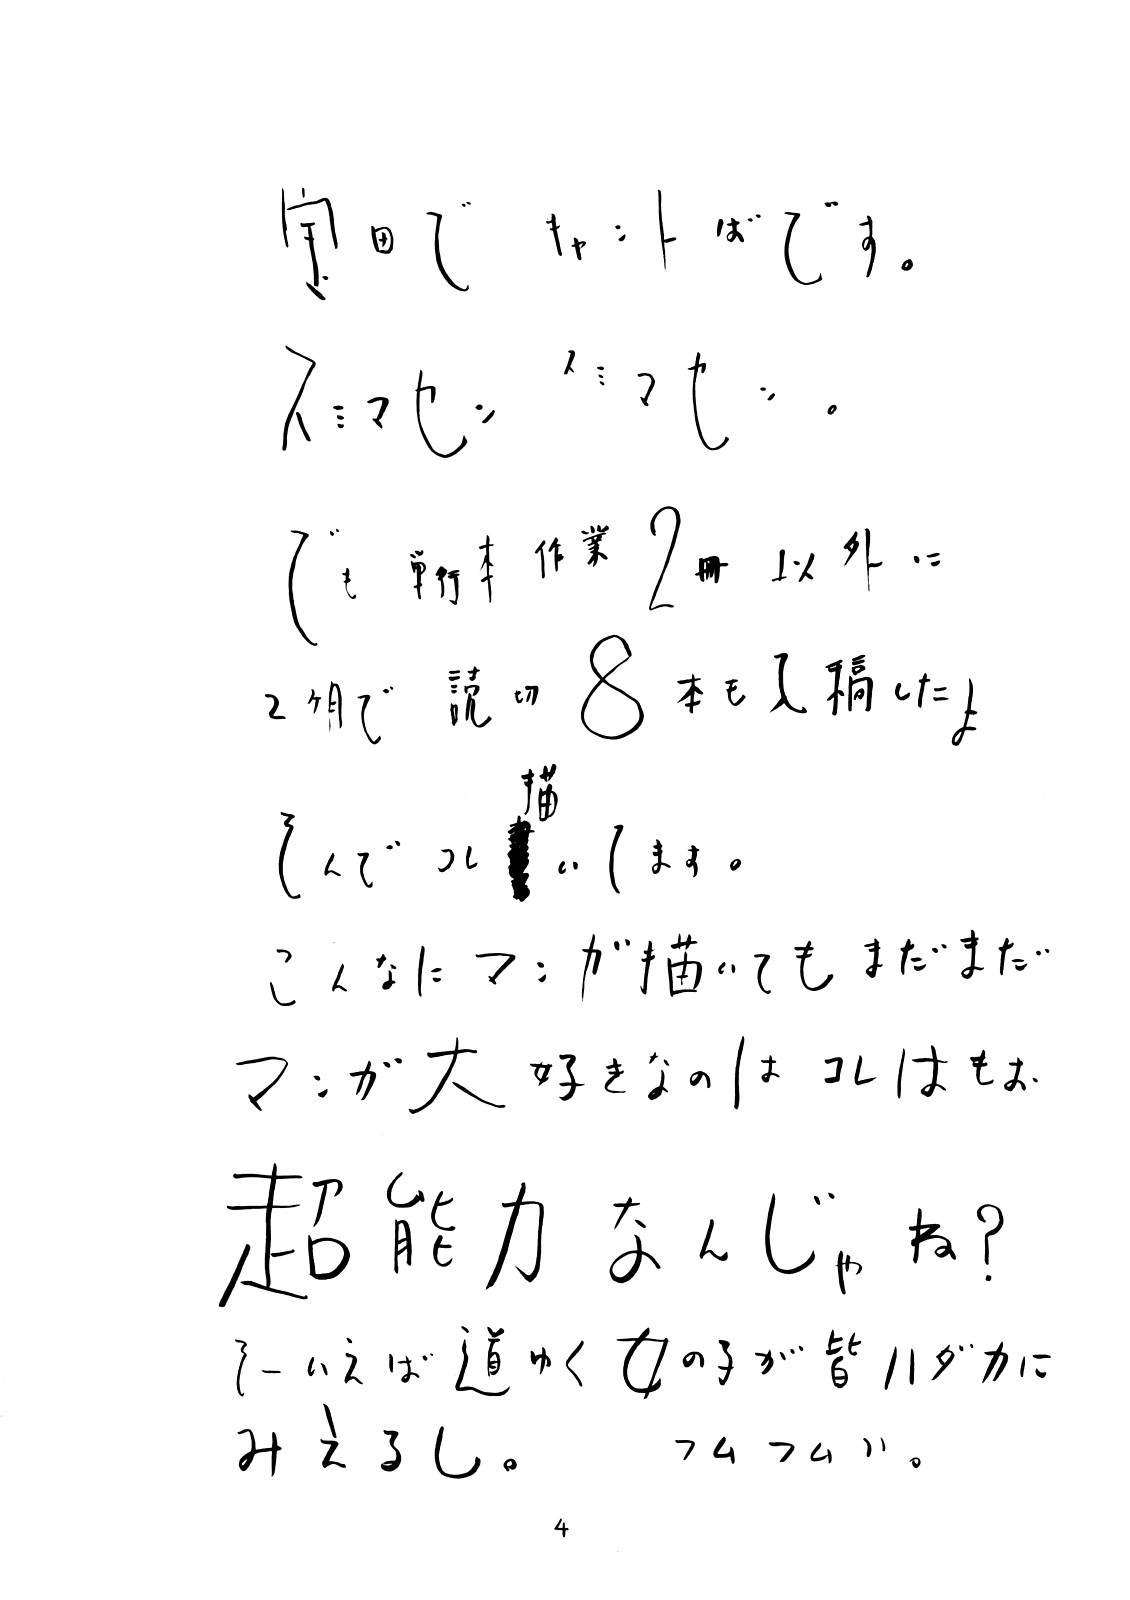 室田で キャントばです。
スミマセン スミマセン。
でも 単行本 作業 2冊 以外に
2ヶ月で 読切 8本も入稿したよ
そんで コレ描いてます。
こんなにマンガ描いてもまだまだ
マンガ大好きなのは コレはもお
超能力なんじゃね?
そーいえば道ゆく女の子が皆ハダカに
みえるし。 フムフムい。
4